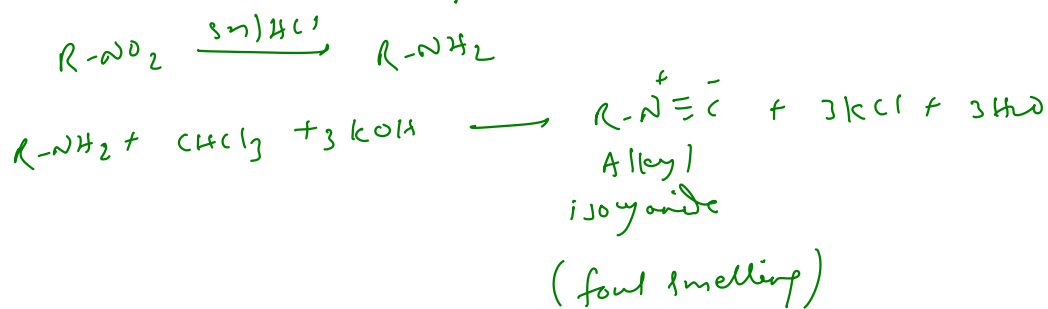 R-NO2 Sn/HCl → R-NH2
R-NH2 + CHCl3 + 3 KOH → R-N⁺≡C⁻ + 3KCl + 3H2O
Alkyl
isocyanide
(foul smelling)